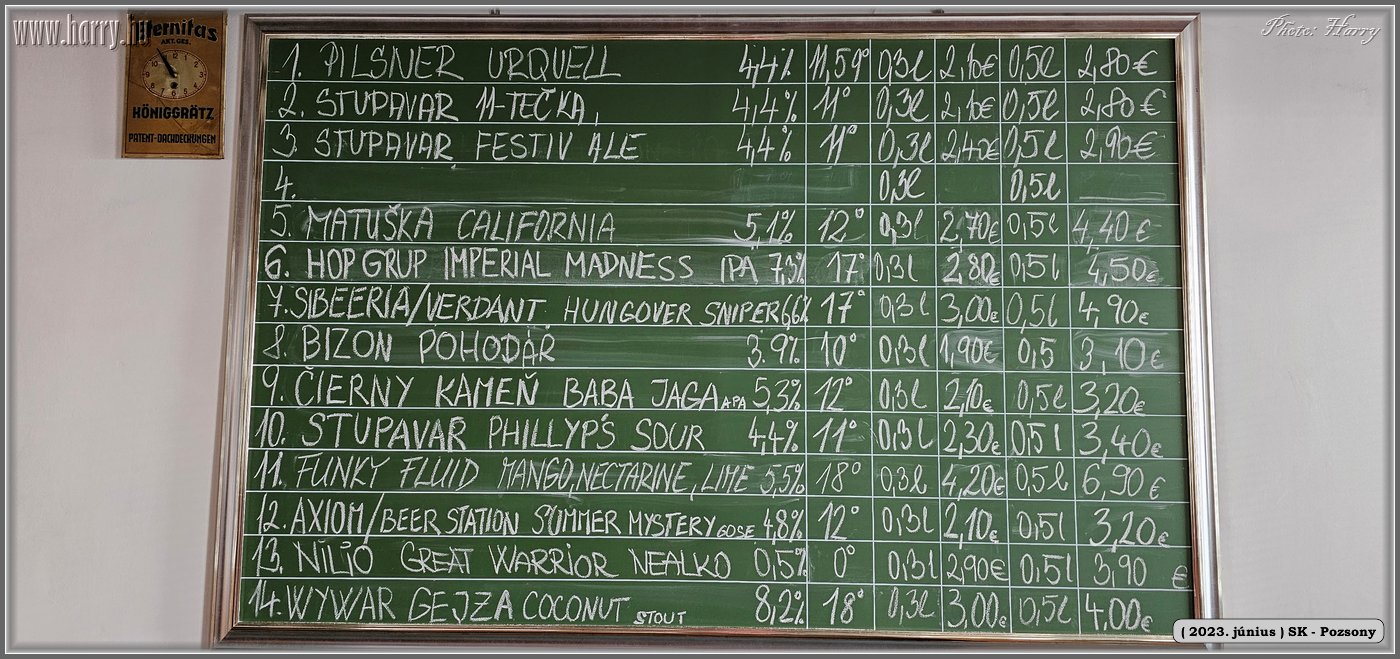 www.harry.hu
Photo: Harry
Eternitas
AKT. GES.
KÖNIGGRÄTZ
PATENT-DACHDECKUNGEN
1. PILSNER URQUELL 4,4% 11,59° 0,3l 2,10€ 0,5l 2,80€
2. STUPAVAR 11-TEČKA, 4,4% 11° 0,3l 2,10€ 0,5l 2,80€
3. STUPAVAR FESTIV ALE 4,4% 11° 0,3l 2,40€ 0,5l 2,90€
4. 0,3l 0,5l
5. MATUŠKA CALIFORNIA 5,1% 12° 0,3l 2,70€ 0,5l 4,40€
6. HOP GRUP IMPERIAL MADNESS IPA 7,3% 17° 0,3l 2,80€ 0,5l 4,50€
7. SIBEERIA/VERDANT HUNGOVER SNIPER 6,6% 17° 0,3l 3,00€ 0,5l 4,90€
8. BIZON POHODÁŘ 3.9% 10° 0,3l 1,90€ 0,5 3,10€
9. ČIERNY KAMEŇ BABA JAGA APA 5,3% 12° 0,3l 2,10€ 0,5l 3,20€
10. STUPAVAR PHILLYP'S SOUR 4,4% 11° 0,3l 2,30€ 0,5l 3,40€
11. FUNKY FLUID MANGO, NECTARINE, LIME 5,5% 18° 0,3l 4,20€ 0,5l 6,90€
12. AXIOM/BEER STATION SUMMER MYSTERY GOSE 4,8% 12° 0,3l 2,10€ 0,5l 3,20€
13. NILIO GREAT WARRIOR NEALKO 0,5% 0° 0,3l 2,90€ 0,5l 3,90 €
14. WYWAR GEJZA COCONUT STOUT 8,2% 18° 0,3l 3,00€ 0,5l 4,00€
( 2023. június ) SK - Pozsony